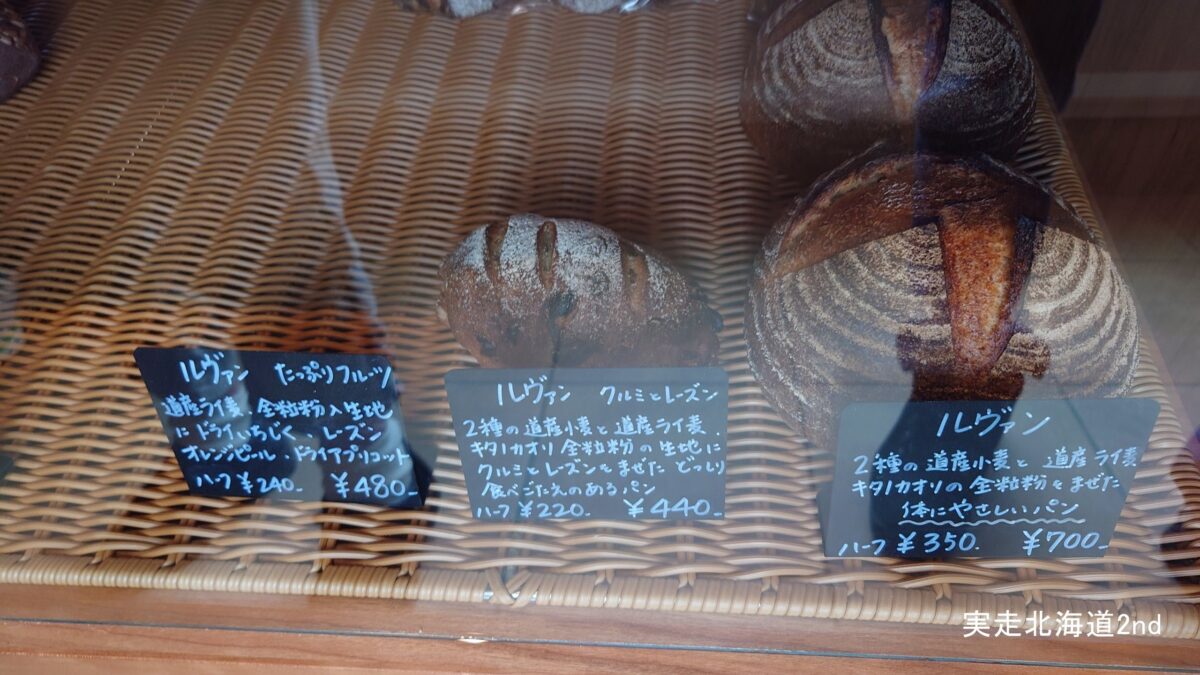 ルヴァン たっぷりフルーツ
道産ライ麦、全粒粉入生地
にドライいちじく、レーズン
オレンジピール、ドライアプリコット
ハーフ ¥240- ¥480-
ルヴァン クルミとレーズン
2種の道産小麦と道産ライ麦、
キタノカオリ全粒粉の生地に
クルミとレーズンをまぜた どっしり
食べごたえのあるパン
ハーフ ¥220- ¥440-
ルヴァン
2種の道産小麦と道産ライ麦
キタノカオリの全粒粉をまぜた
体にやさしいパン
ハーフ ¥350. ¥700-
実走北海道2nd